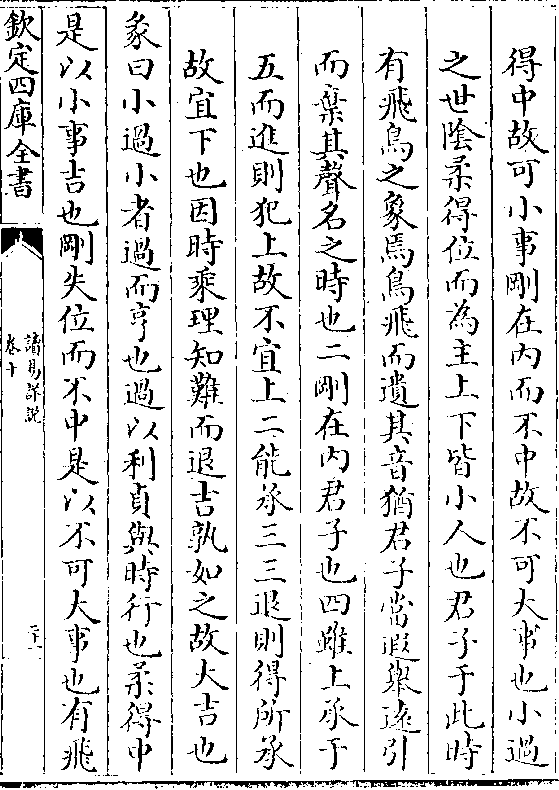 得中故可小事剛在内而不中故不可大事也小過
之世陰柔得位而為主上下皆小人也君子于此時
有飛鳥之象焉鳥飛而遺其音猶君子當遐舉逺引
而棄其聲名之時也二剛在内君子也四雖上承于
五而進則犯上故不宜上二能承三三退則得所承
故宜下也因時乘理知難而退吉孰如之故大吉也
彖曰小過小者過而亨也過以利貞與時行也柔得中
是以小事吉也剛失位而不中是以不可大事也有飛
欽定四庫全書
讀易詳説
卷十